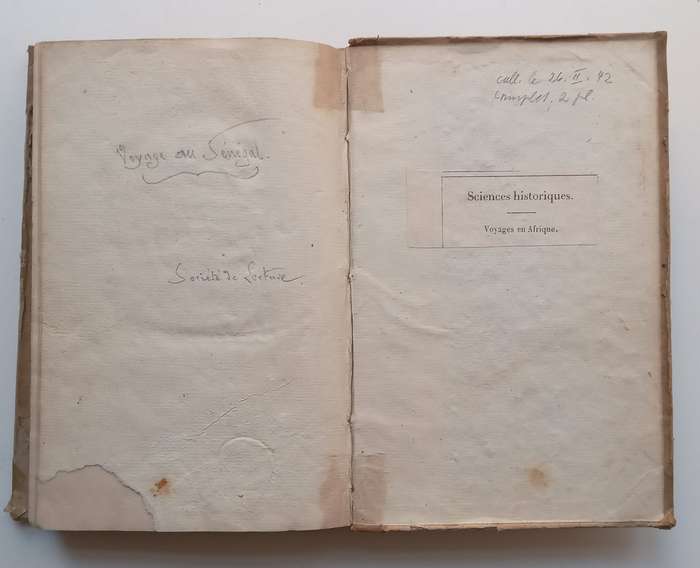 Voyage au Sénégal.
Société de Lecture
coll. le 26.II.42
complet, 2 pl.
Sciences historiques.
Voyages en Afrique.